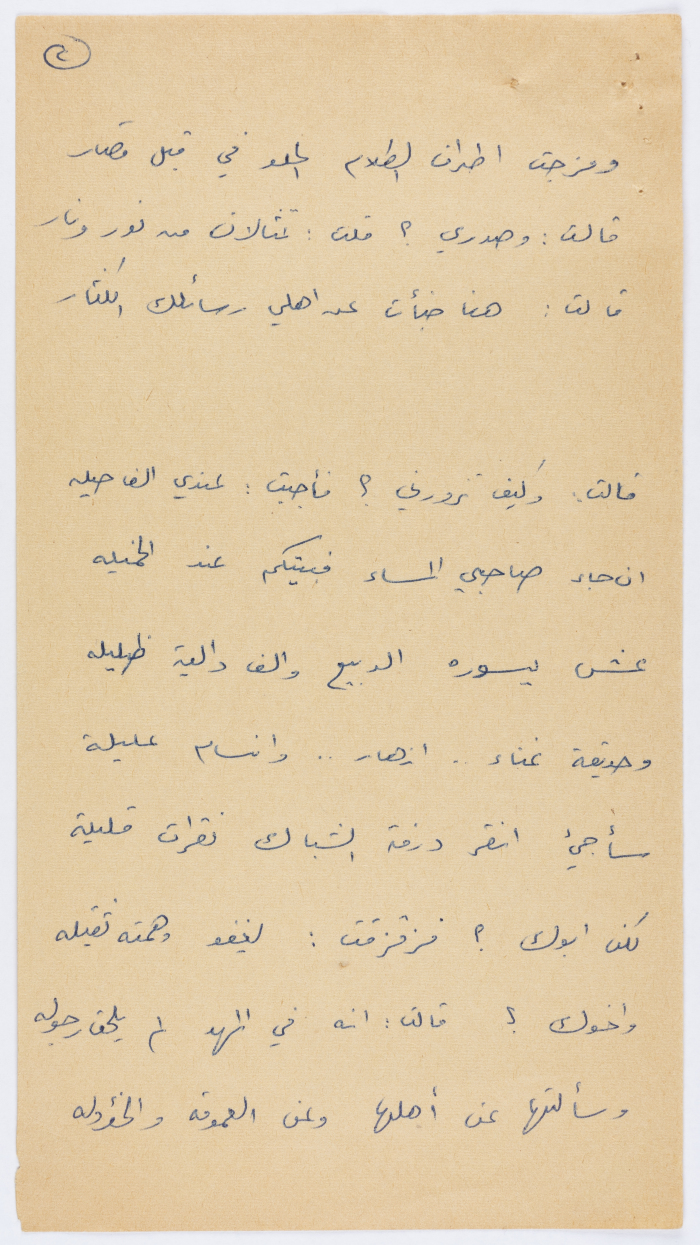 ٤
ومزجت اطراف الظلام الحلو في قبل قصار
قالت : وصدري ؟ قلت : تمثالان من نور ونار
قالت : هنا خبأت عن اهلي رسائلك الكثار
قالت : وكيف تزورني ؟ فأجبت : عندي الف حيله
ان جاء صاحبي المساء فبيتكم عند الخميله
عش يسوره الربيع والف دالية ظليله
وحديقة غناء .. ازهار .. وانسام عليلة
سأجيئ انقر درفة الشباك نقرات قليلة
لكن ابوك ؟ فزقزقت : ليغفو وهمته ثقيله
واخوك ؟ قالت : انه في المهد لم يلحق رجوله
وسألتها عن أهلها وعن العمومة والخؤوله